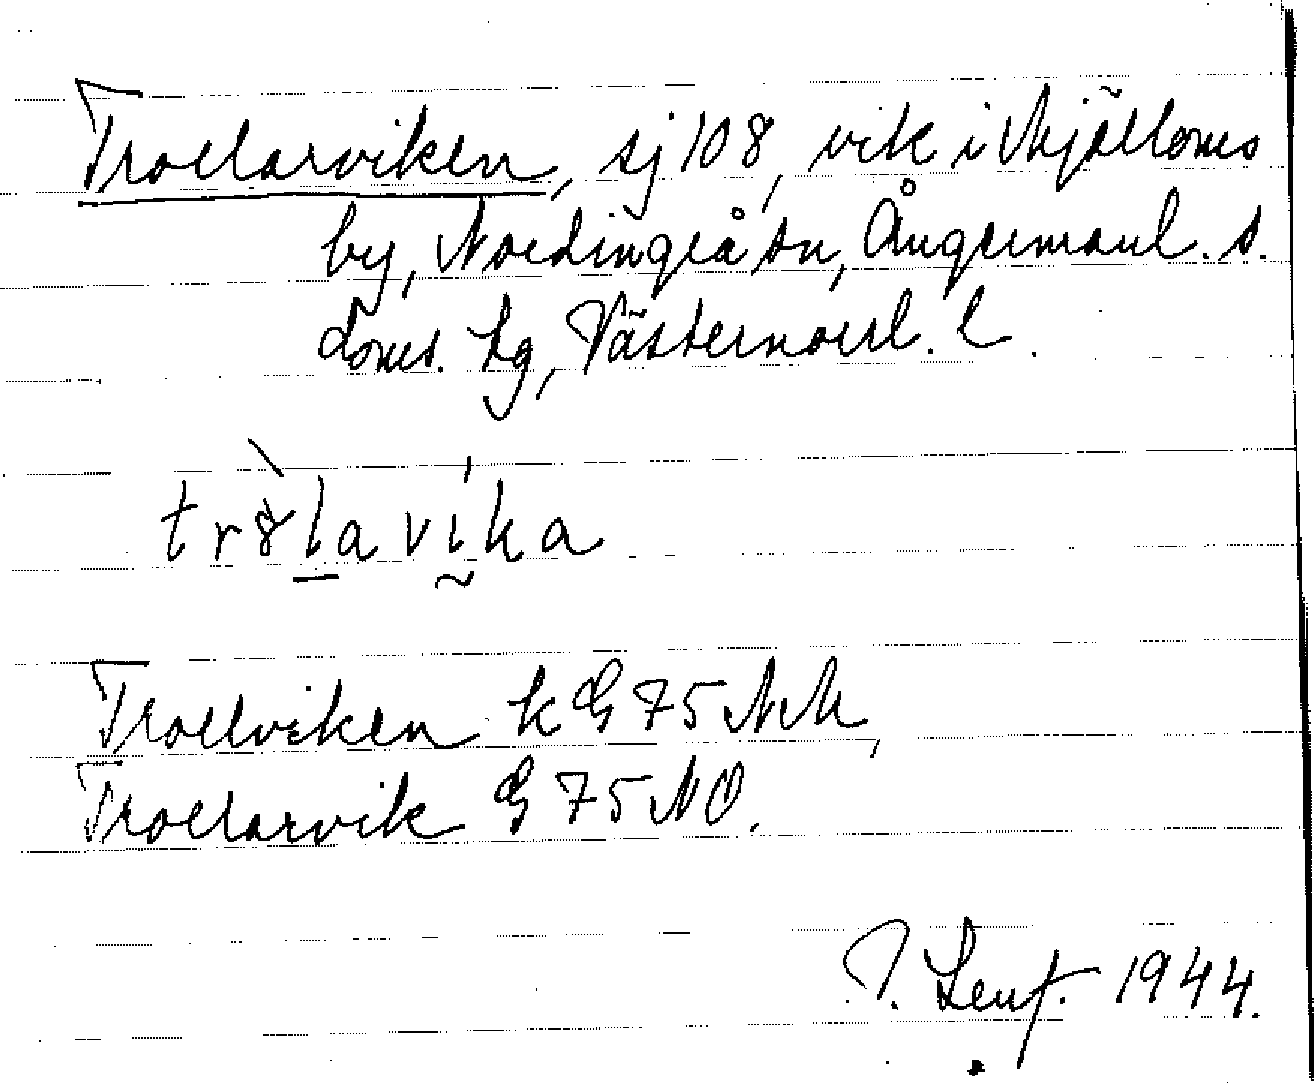 Trollarviken, sj 108, vik i Mjälloms
by, Nordingrå sn, Ångermanl. s.
doms. lg, Västernorrl. l.
trålavika
Trollviken k G 75 NM,
Trollarvik G 75 NO.
1944.